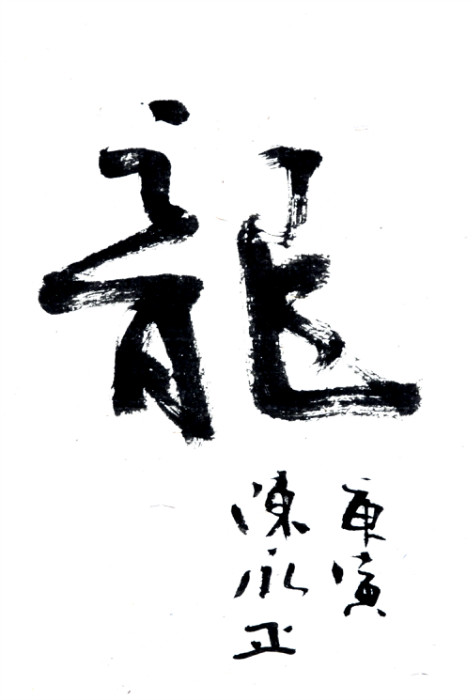 龍
庚寅
陳永正